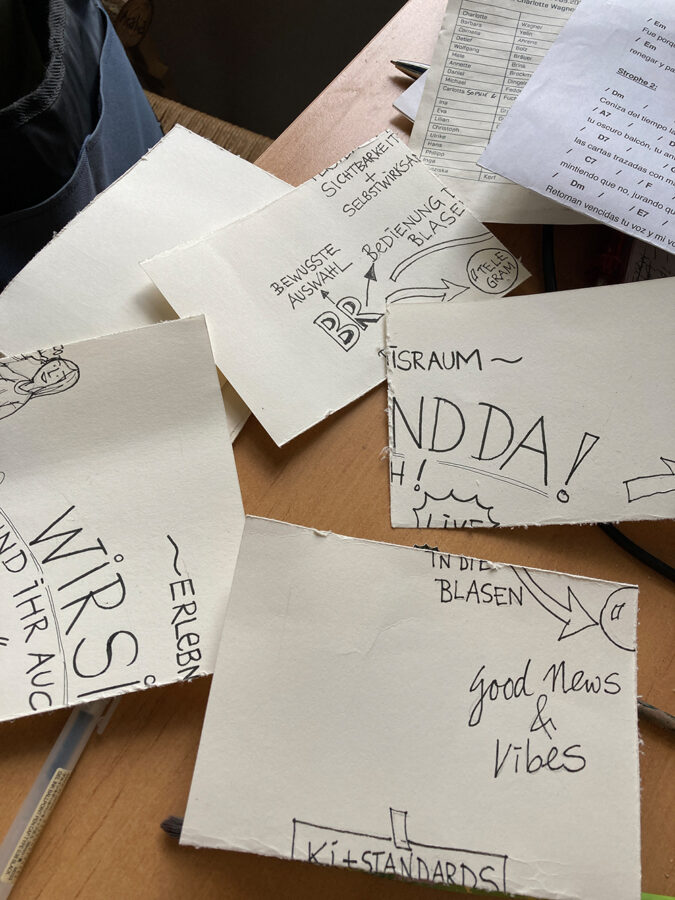 Charlotte Wagner
Charlotte Wagner
Barbara Yelin
Cornelia Ahrens
Detlef Bolz
Wolfgang Bräuer
Annette
Daniel
Michael
Carlotta Sophie
Ina
Eva
Lilian
Christoph
Ulrike
Hans
Philipp
Kerf
/ Em
Fue porq
/ Em
renegar y pa
Strophe 2:
/ Dm
Ceniza del tiempo la
/ A7
tu oscuro balcón, tu an
/ D7
las cartas trazadas con ma
/ C7 / F
mintiendo que no, jurando qu
/ Dm / E7
Retornan vencidas tu voz y mi vo
SICHTBARKEIT
+
SELBSTWIRKSA
BEWUSSTE
AUSWAHL
BEDIENUNG
BLASE
BR
TELE
GRAM
ISRAUM ~
ND DA!
H!
LIVE
WIR Si
ND IHR AUC
~ERLEBN
IN DIE
BLASEN
good News
&
Vibes
Ki+STANDARDS